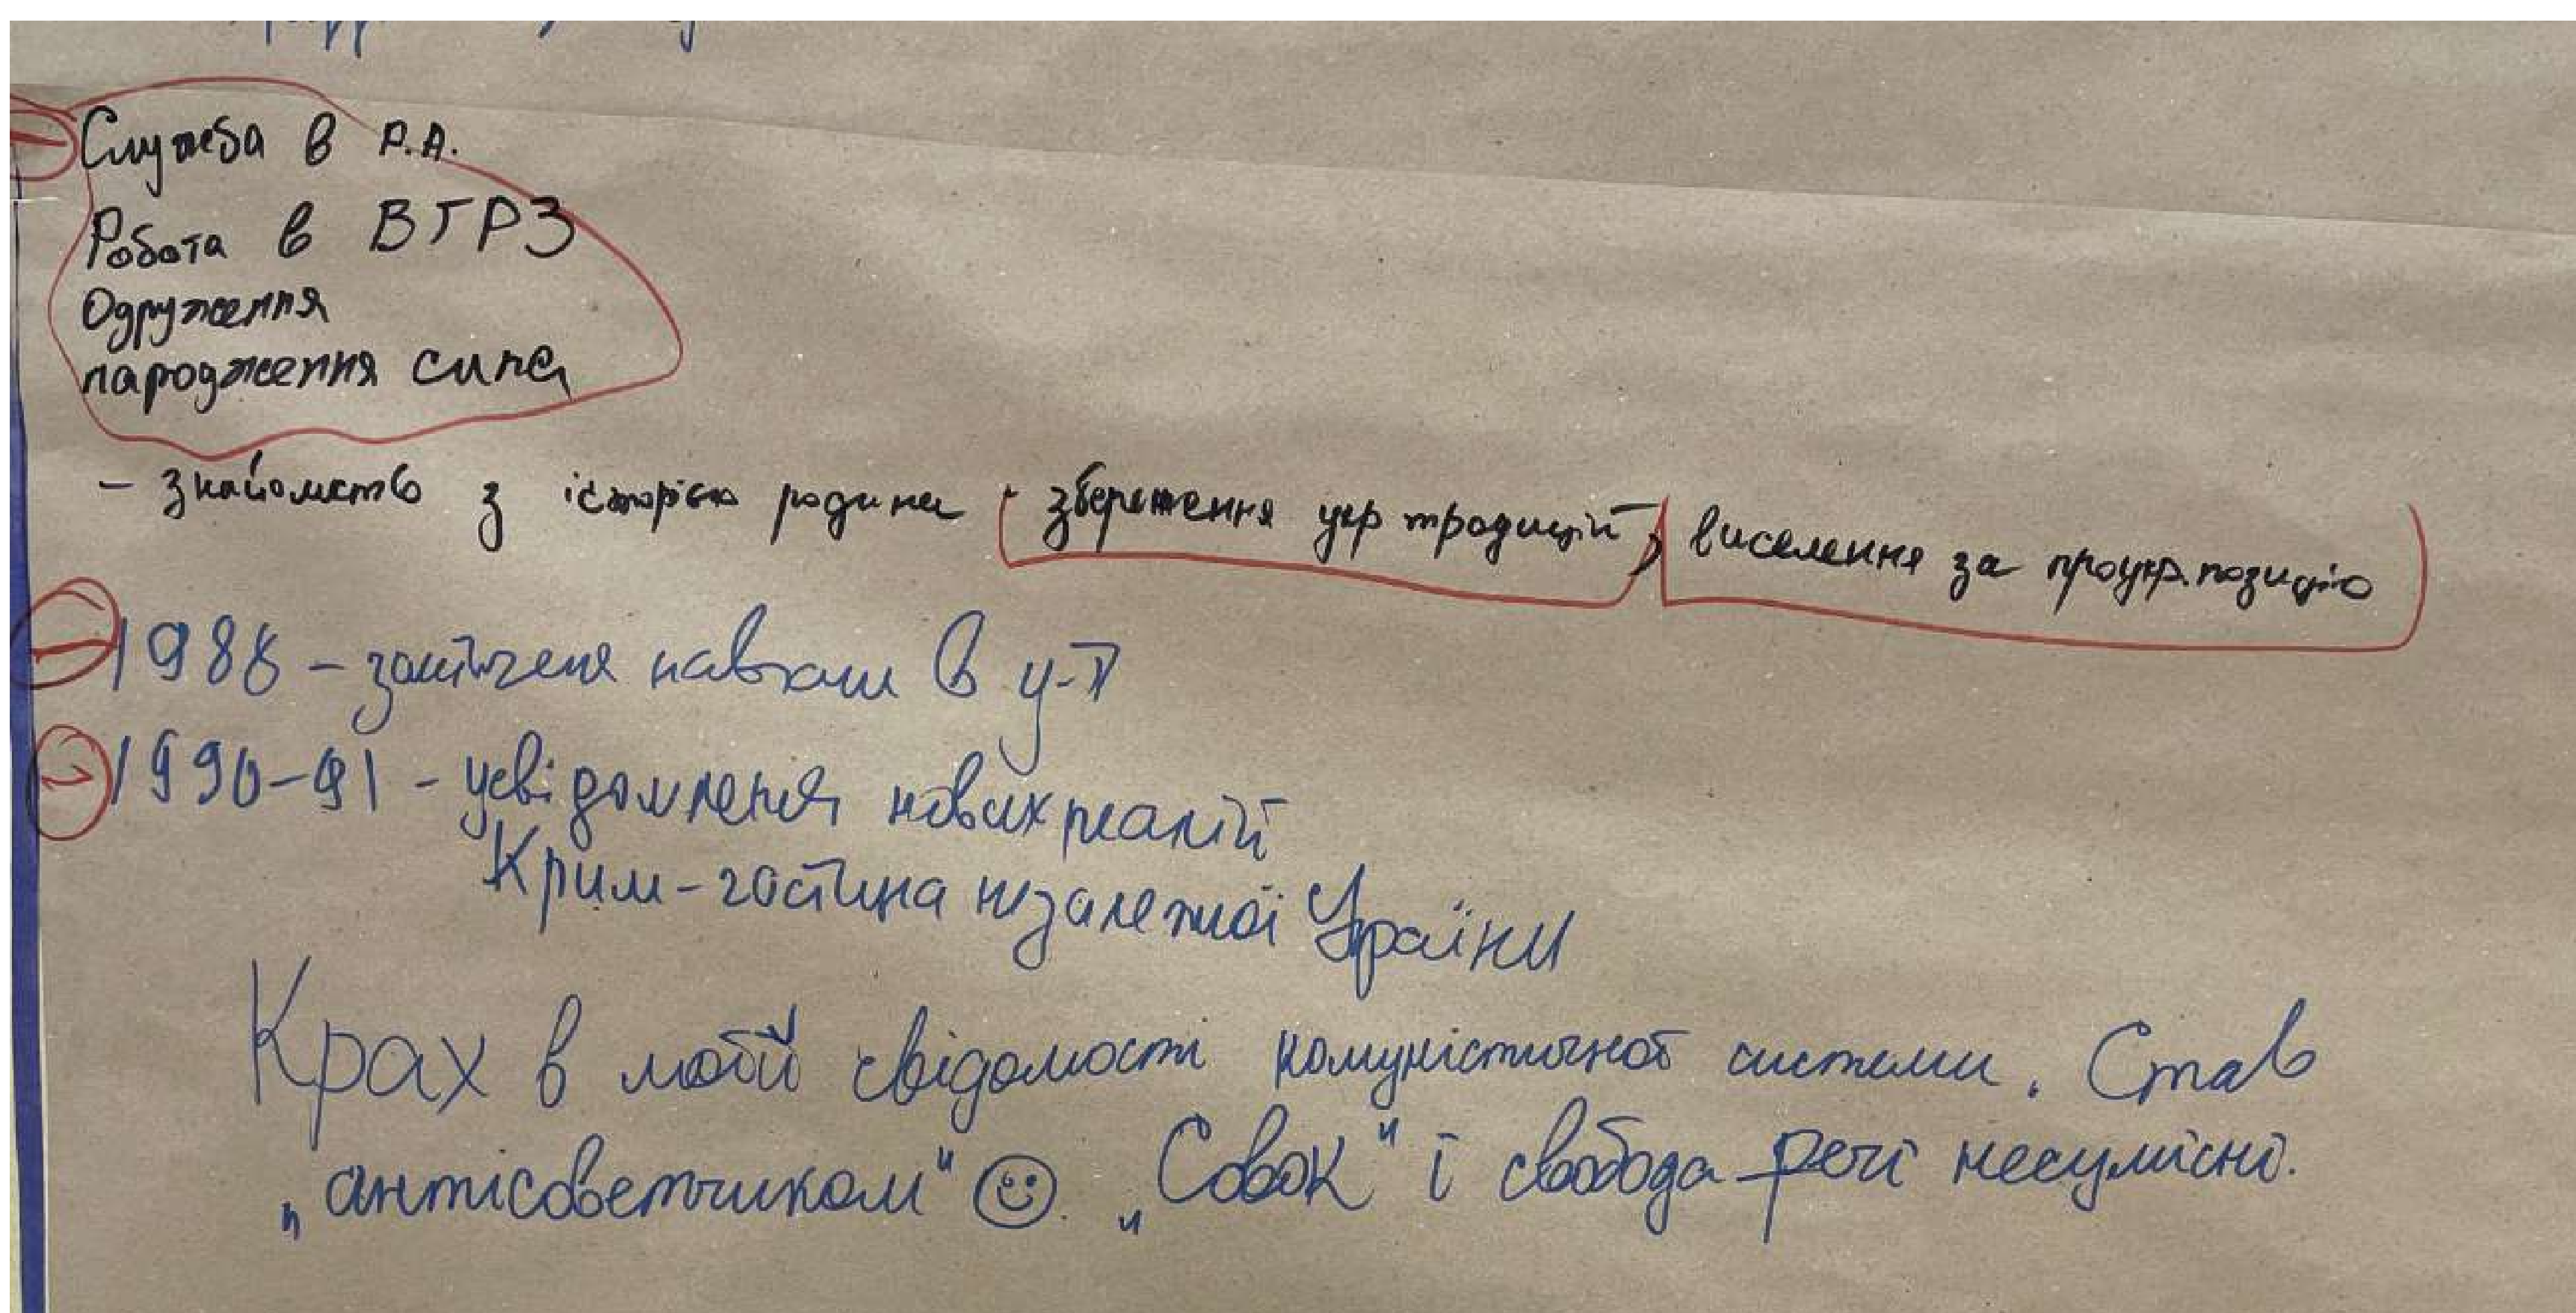 Служба в Р.А.
Робота в ВГРЗ
Одруження
народження сина
- знайомство з історією родини (збереження укр традицій, виселення за проукр. позицію
1988 - в у-т
1990-91 - усвідомлення нових реалій
Крим - частина незалежної України
Крах в моїй свідомості комуністичної системи. Став
„антісовєтчиком" ☺. „Совок" і свобода - речі несумісні.